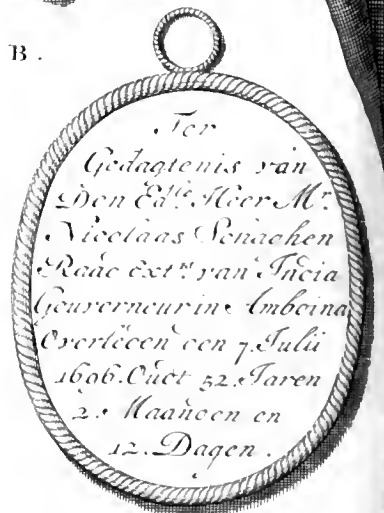 B.
Ter
Gedagtenis van
Den Ed.le Heer Mr.
Nicolaas Schaghen
Raad Ext.rs van India
Gouverneur in Amboina
Overleeden den 7. Julii
1696. Oudt 52. Jaren
2. Maanden en
12. Dagen.